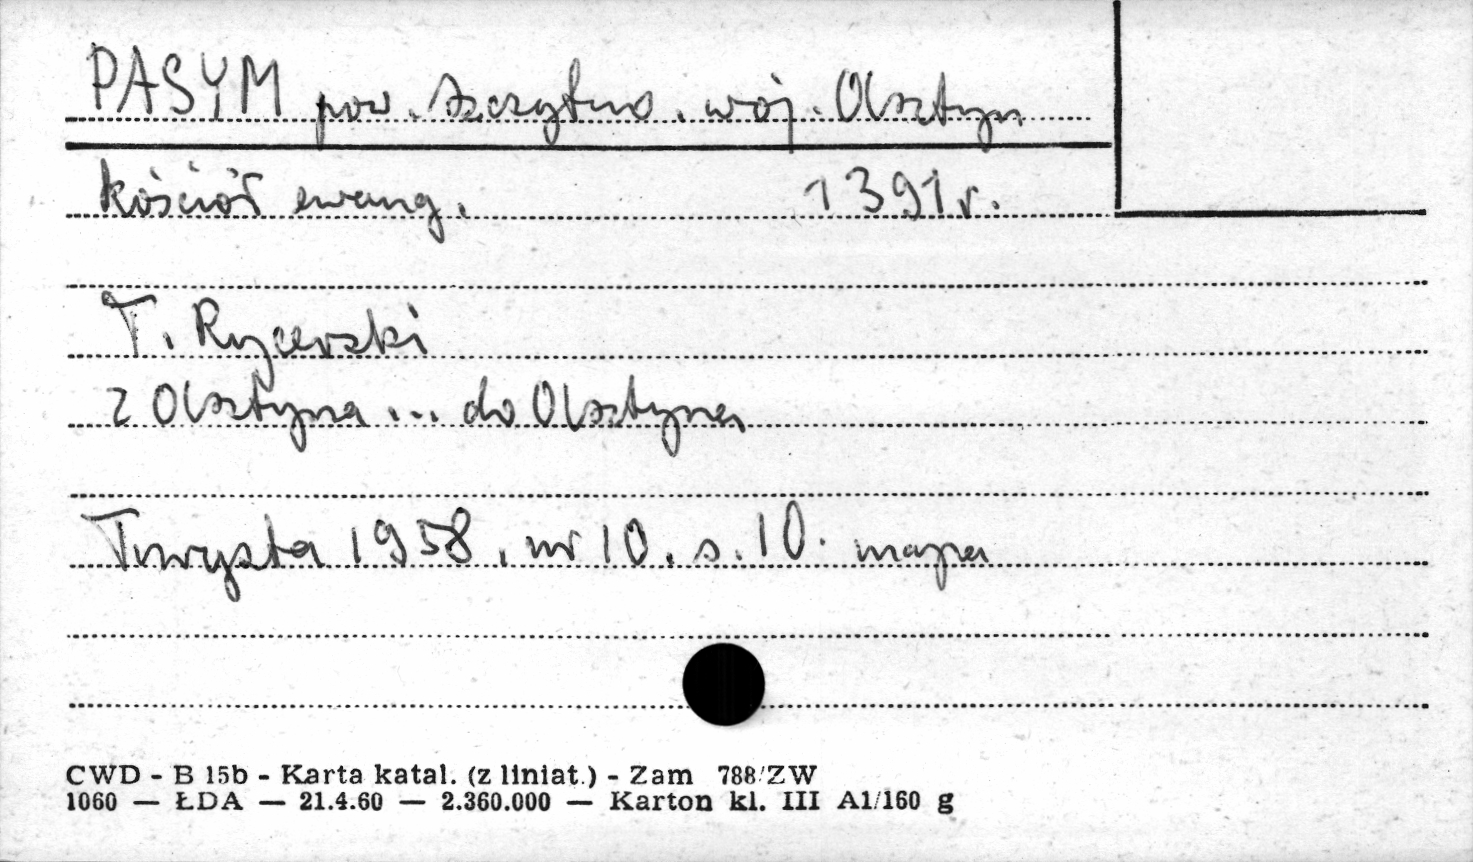 PASYM pow. Szczytno. woj. Olsztyn
kościół ewang. 1391 r.
T. Rycerski
z Olsztyna ... do Olsztyna
Turysta 1958, nr 10. s. 10. mapa
CWD - B 15b - Karta katal. (z liniat.) - Zam 788/ZW
1060 — ŁDA — 21.4.60 — 2.360.000 — Karton kl. III A1/160 g